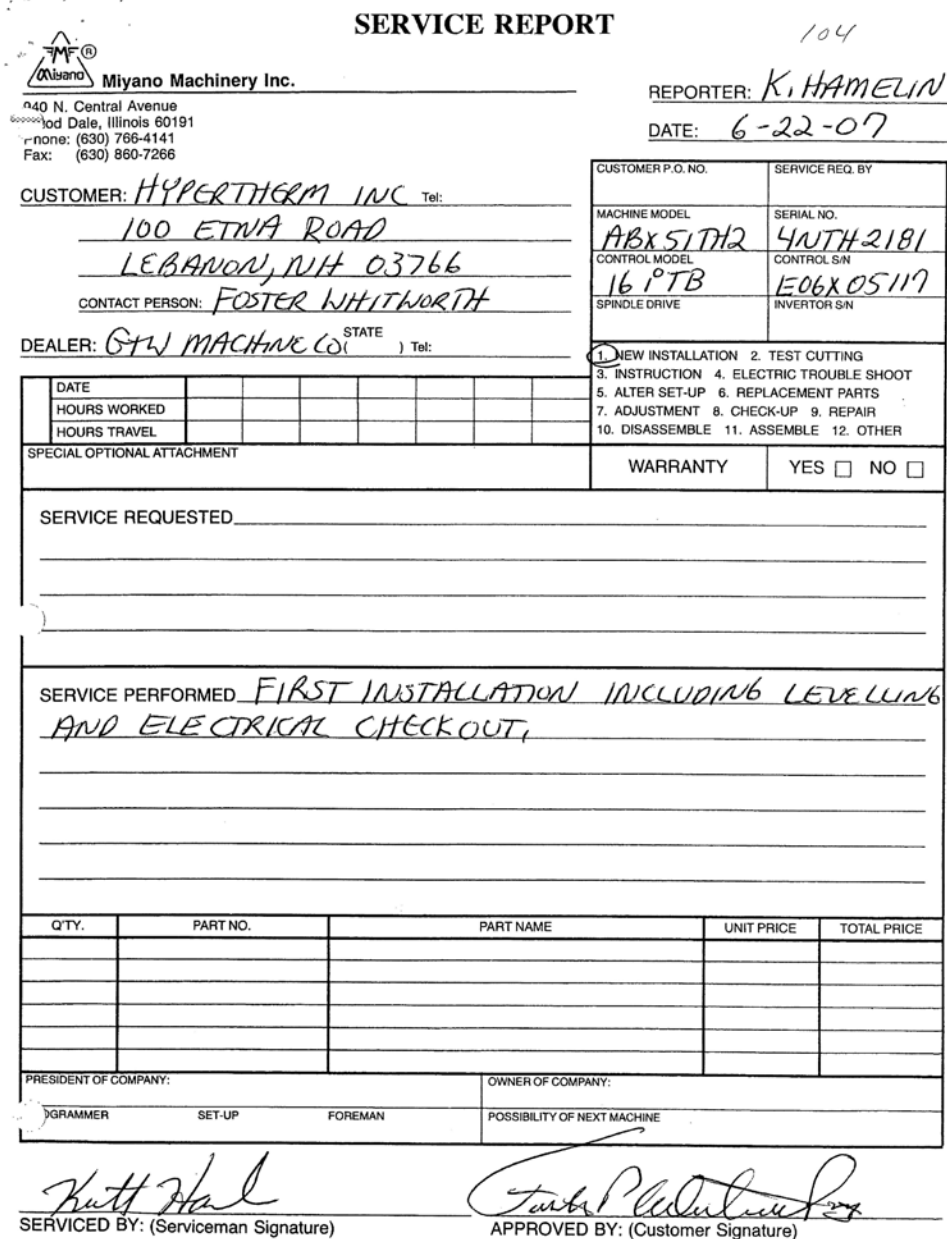 SERVICE REPORT
104
MF ®
Miyano
Miyano Machinery Inc.
940 N. Central Avenue
od Dale, Illinois 60191
Phone: (630) 766-4141
Fax: (630) 860-7266
REPORTER: K. HAMELIN
DATE: 6-22-07
CUSTOMER: HYPERTHERM INC Tel:
100 ETNA ROAD
LEBANON, NH 03766
CONTACT PERSON: FOSTER WHITWORTH
DEALER: GTW MACHINE CO (STATE ) Tel:
CUSTOMER P.O. NO. SERVICE REQ. BY
MACHINE MODEL SERIAL NO.
ABX51TH2 4NTH2181
CONTROL MODEL CONTROL S/N
16iTB E06X05117
SPINDLE DRIVE INVERTOR S/N
1. NEW INSTALLATION 2. TEST CUTTING
3. INSTRUCTION 4. ELECTRIC TROUBLE SHOOT
5. ALTER SET-UP 6. REPLACEMENT PARTS
7. ADJUSTMENT 8. CHECK-UP 9. REPAIR
10. DISASSEMBLE 11. ASSEMBLE 12. OTHER
DATE
HOURS WORKED
HOURS TRAVEL
SPECIAL OPTIONAL ATTACHMENT
WARRANTY YES ☐ NO ☐
SERVICE REQUESTED
SERVICE PERFORMED FIRST INSTALLATION INCLUDING LEVELLING
AND ELECTRICAL CHECKOUT,
Q'TY. PART NO. PART NAME UNIT PRICE TOTAL PRICE
PRESIDENT OF COMPANY: OWNER OF COMPANY:
OGRAMMER SET-UP FOREMAN POSSIBILITY OF NEXT MACHINE
SERVICED BY: (Serviceman Signature) APPROVED BY: (Customer Signature)